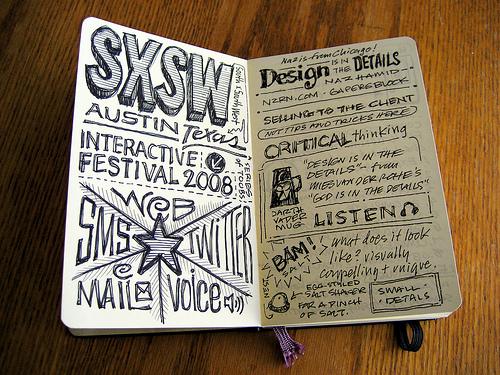 SXSW
AUSTIN Texas
INTERACTIVE
FESTIVAL 2008
WEB
SMS TWITTER
MAIL voice
Nazis from Chicago!
Design IS IN THE DETAILS
NAZ HAMID
NZRN.COM - GAPERSBLOCK
SELLING TO THE CLIENT
NOT TIPS AND TRICKS HERE
CRITICAL thinking
"DESIGN IS IN THE
DETAILS" - from
MIES VAN DER ROHE'S
"GOD IS IN THE DETAILS"
DARTH
VADER
MUG
LISTEN
BAM!
what does it look
like? visually
compelling + unique.
EGG-STYLED
SALT SHAKER
FOR A PINCH
OF SALT.
SMALL
DETAILS